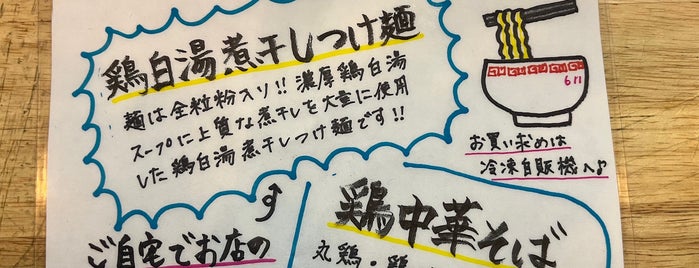 鶏白湯煮干しつけ麺
麺は全粒粉入り!! 濃厚鶏白湯
スープに上質な煮干しを大量に使用
した鶏白湯煮干しつけ麺です!!
お買い求めは
冷凍自販機へ♪
ご自宅でお店の
鶏中華そば
丸鶏・鶏